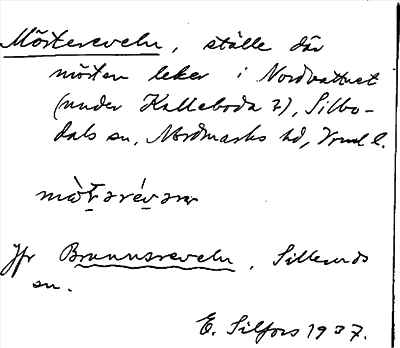 Mörtereveln, ställe där
mörten leker i Nordvattnet
(under Kalleboda 2), Silbo-
dals sn, Nordmarks hd, Vrml l.
Jfr Brunnsreveln, Silleruds
sn.
E. Silfors 1937.